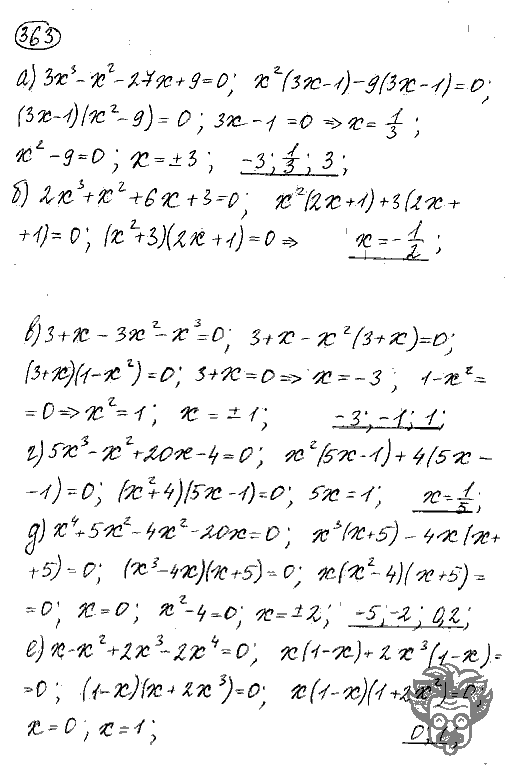 363
а) 3x³ - x² - 27x + 9 = 0; x²(3x-1) - 9(3x-1) = 0;
(3x-1)(x² - 9) = 0; 3x - 1 = 0 ⇒ x = 1/3;
x² - 9 = 0; x = ±3; -3; 1/3; 3;
б) 2x³ + x² + 6x + 3 = 0; x²(2x+1) + 3(2x +
+1) = 0; (x²+3)(2x+1) = 0 ⇒ x = -1/2;
в) 3 + x - 3x² - x³ = 0; 3 + x - x²(3+x) = 0;
(3+x)(1-x²) = 0; 3+x = 0 ⇒ x = -3; 1-x² =
= 0 ⇒ x² = 1; x = ±1; -3; -1; 1;
г) 5x³ - x² + 20x - 4 = 0; x²(5x-1) + 4(5x -
-1) = 0; (x²+4)(5x-1) = 0; 5x = 1; x = 1/5;
д) x⁴ + 5x² - 4x² - 20x = 0; x³(x+5) - 4x(x+
+5) = 0; (x³-4x)(x+5) = 0; x(x²-4)(x+5) =
= 0; x = 0; x² - 4 = 0; x = ±2; -5; -2; 0,2;
е) x - x² + 2x³ - 2x⁴ = 0; x(1-x) + 2x³(1-x) =
= 0; (1-x)(x+2x³) = 0; x(1-x)(1+2x²) = 0;
x = 0; x = 1; 0; 1;